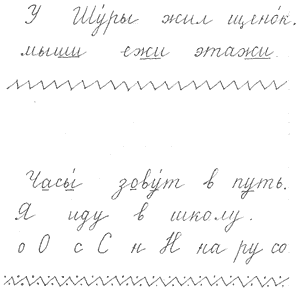 У Шу́ры жил щено́к.
мыши ежи этажи
Часы́ зову́т в путь.
Я иду в школу.
о О с С н Н на ру со